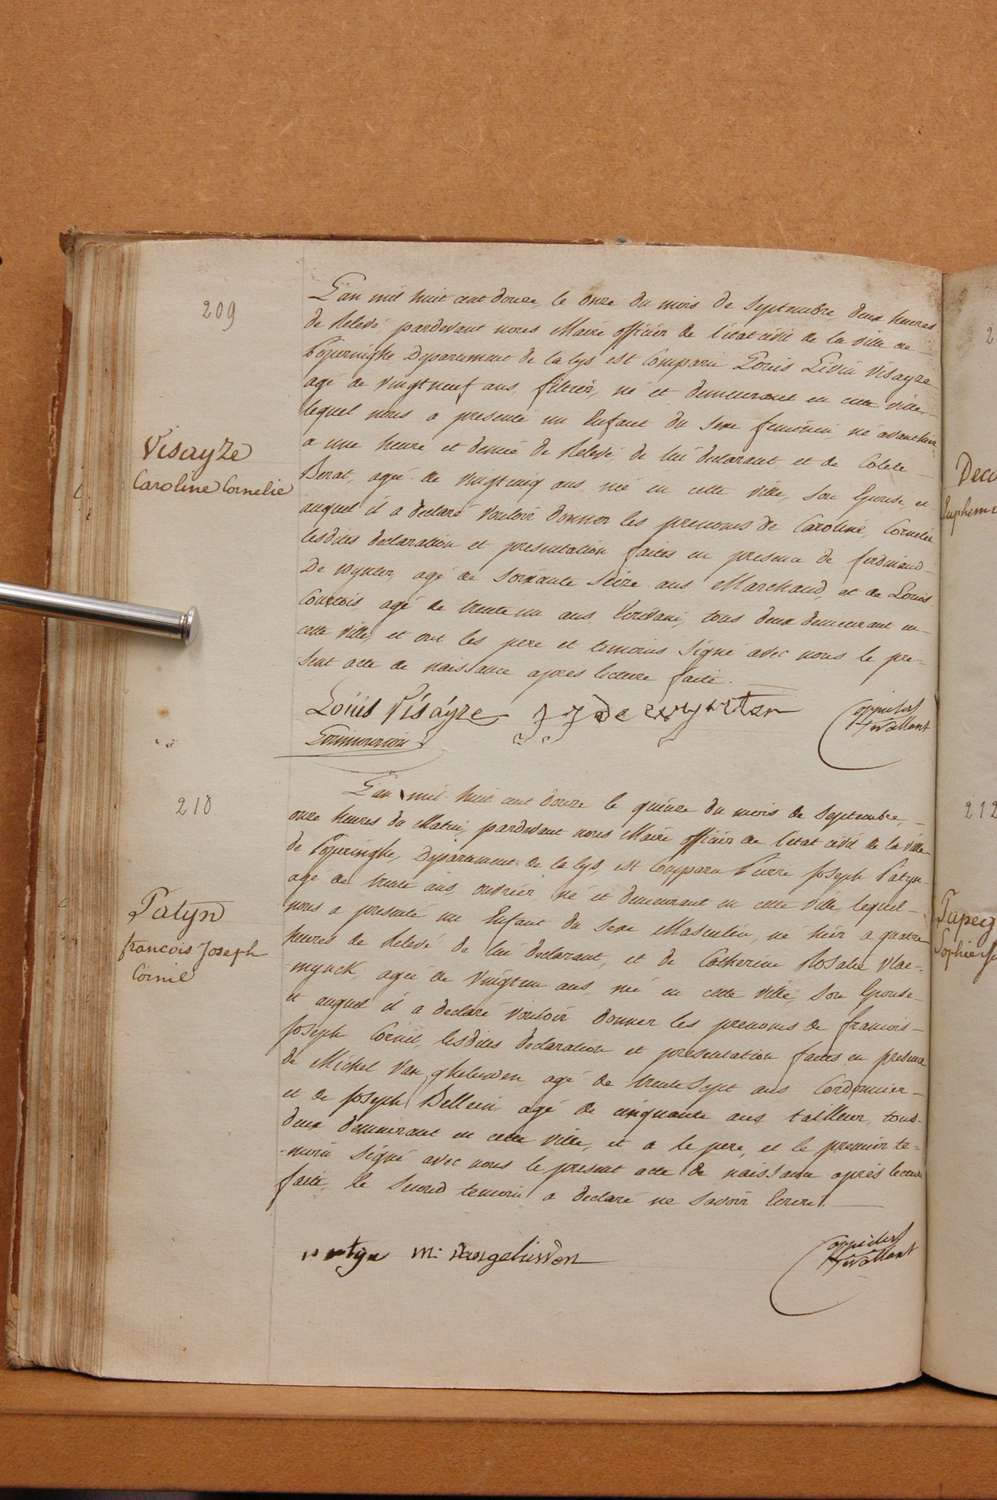 209
L'an mil huit cent douze, le onze du mois de Septembre deux heures
de Relevé pardevant nous Maire officier de l'état civil de la ville de
Poperinghe Département de la Lys est comparu Louis Livin Visayze
agé de vingtneuf ans, né et demeurant en cette ville
lequel nous a presenté un Enfant du Sexe feminin né avant hier
a une heure et demie de Relevé, de lui declarant et de Colete
agé de vingtcinq ans né en cette ville, Son Epouse, et
auquel il a declaré vouloir donner les prenoms de Caroline, Cornelie
lesdites declaration et presentation faites en presence de ferdinand
De wynter, agé de Soixante Seize ans Marchand, et de Louis
agé de trente un ans tous deux demeurant en
cette ville, et ont les pere et temoins Signé avec nous le pre-
sent acte de naissance apres lecture faite.
Visayze
Caroline Cornelie
Louis Visayze
210
L'an mil huit cent douze le quinze du mois de Septembre,
onze heures du Matin, pardevant nous Maire officier de l'état civil de la ville
de Poperinghe, Département de la Lys, est comparu Pierre Joseph Patyn
agé de trente ans, né et demeurant en cette ville lequel
nous a presenté un Enfant du Sexe Masculin, né hier a quatre
heures de Relevé de lui declarant, et de Catherine Rosalie Vlae-
mynck, agée de vingtun ans née en cette ville, Son Epouse
et auquel il a declaré vouloir donner les prenoms de francois
Joseph Cornil, lesdites declaration et presentation faites en presence
de Michel Van ghelewden agé de trente Sept ans Cordonnier
et de Joseph Bellein agé de cinquante ans tailleur, tous
deux demeurant en cette ville, et a le pere, et le premier te-
-moin Signé avec nous le present acte de naissance après lecture
faite, le Second temoin a declaré ne Savoir Ecrire.
Patyn
francois Joseph
Cornil
patyn